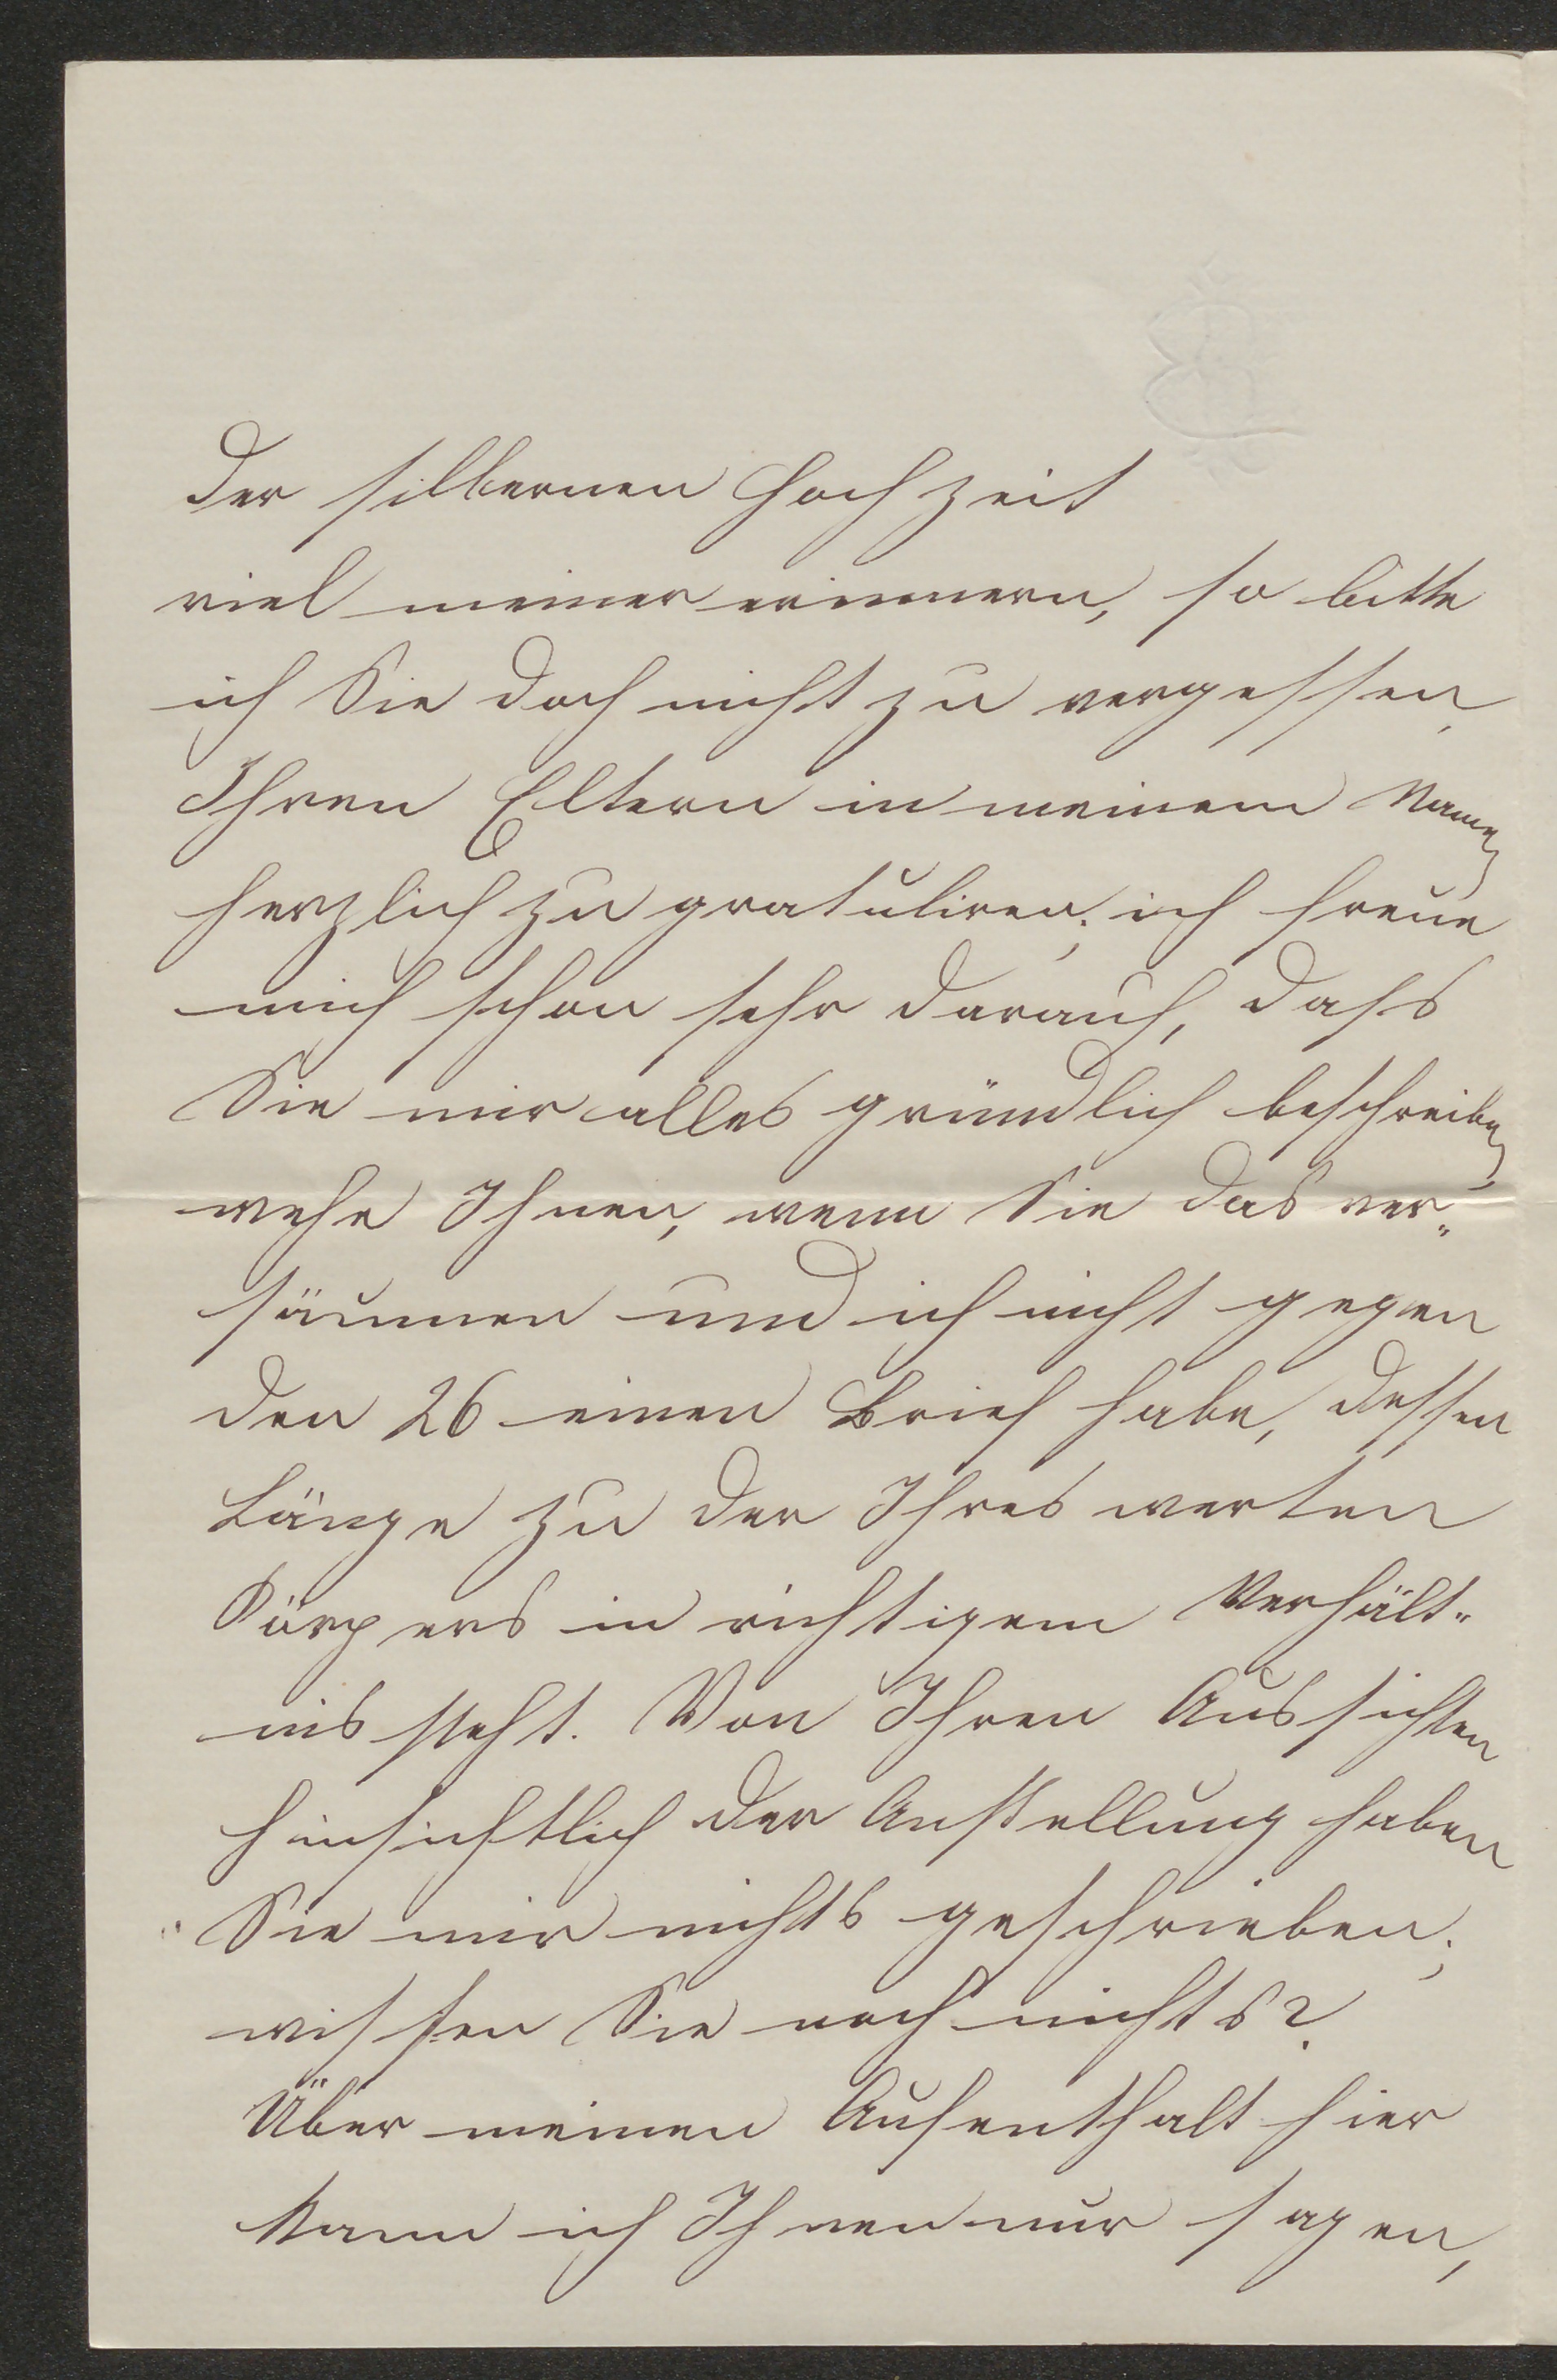 der silbernen Hochzeit
viel meiner erinnern, so bitte
ich Sie doch nicht zu vergessen
Ihren Eltern in meinem Namen
herzlich zu gratuliren; ich freue
mich schon sehr darauf, dass
Sie mir alles gründlich beschreiben
wehe Ihnen, wenn Sie das ver„
säumen und ich nicht gegen
den 26 einen Brief habe, dessen
Länge zu der Ihres werten
Körpers in richtigem Verhält„
nis steht. Von Ihren Aussichten
hinsichtlich der Anstellung haben
Sie mir nichts geschrieben;
wissen Sie noch nichts?
Über meinen Aufenthalt hier
kann ich Ihnen nur sagen,